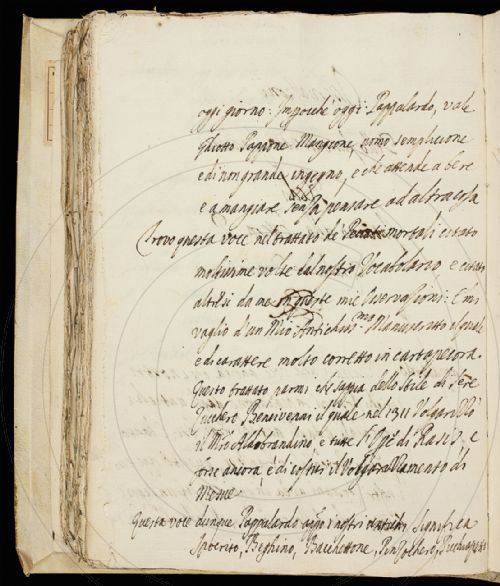 oggi giorno: Imperchè oggi Pappalardo, vale
Ghiotto Pappone Mangione, uomo semplicione
e di non grande ingegno, e che attende a bere
e a mangiare senza pensare ad altra cosa
Trovo questa voce nel trattato de Peccati mortali citato
moltissime volte dal nostro Vocabolario, e citato
altresì da me in queste mie Osservazioni: E mi
vaglio d'un Mio Antichiss.mo Manuscritto il quale
e di carattere molto corretto in cartapecora.
Questo trattato parmi che sappia dello stile di Sere
Zucchero Bencivenni il quale nel 1311 Volgarizzò
il Mro Aldobrandino e tutte l'Ope di Rasis, e
forse ancora, è di costui il Volgarizzamento di
Mesue.
Questa voce dunque Pappalardo appo i nostri antichi Significa
Ipocrito, Beghino, Bacchettone, Pinzochero,